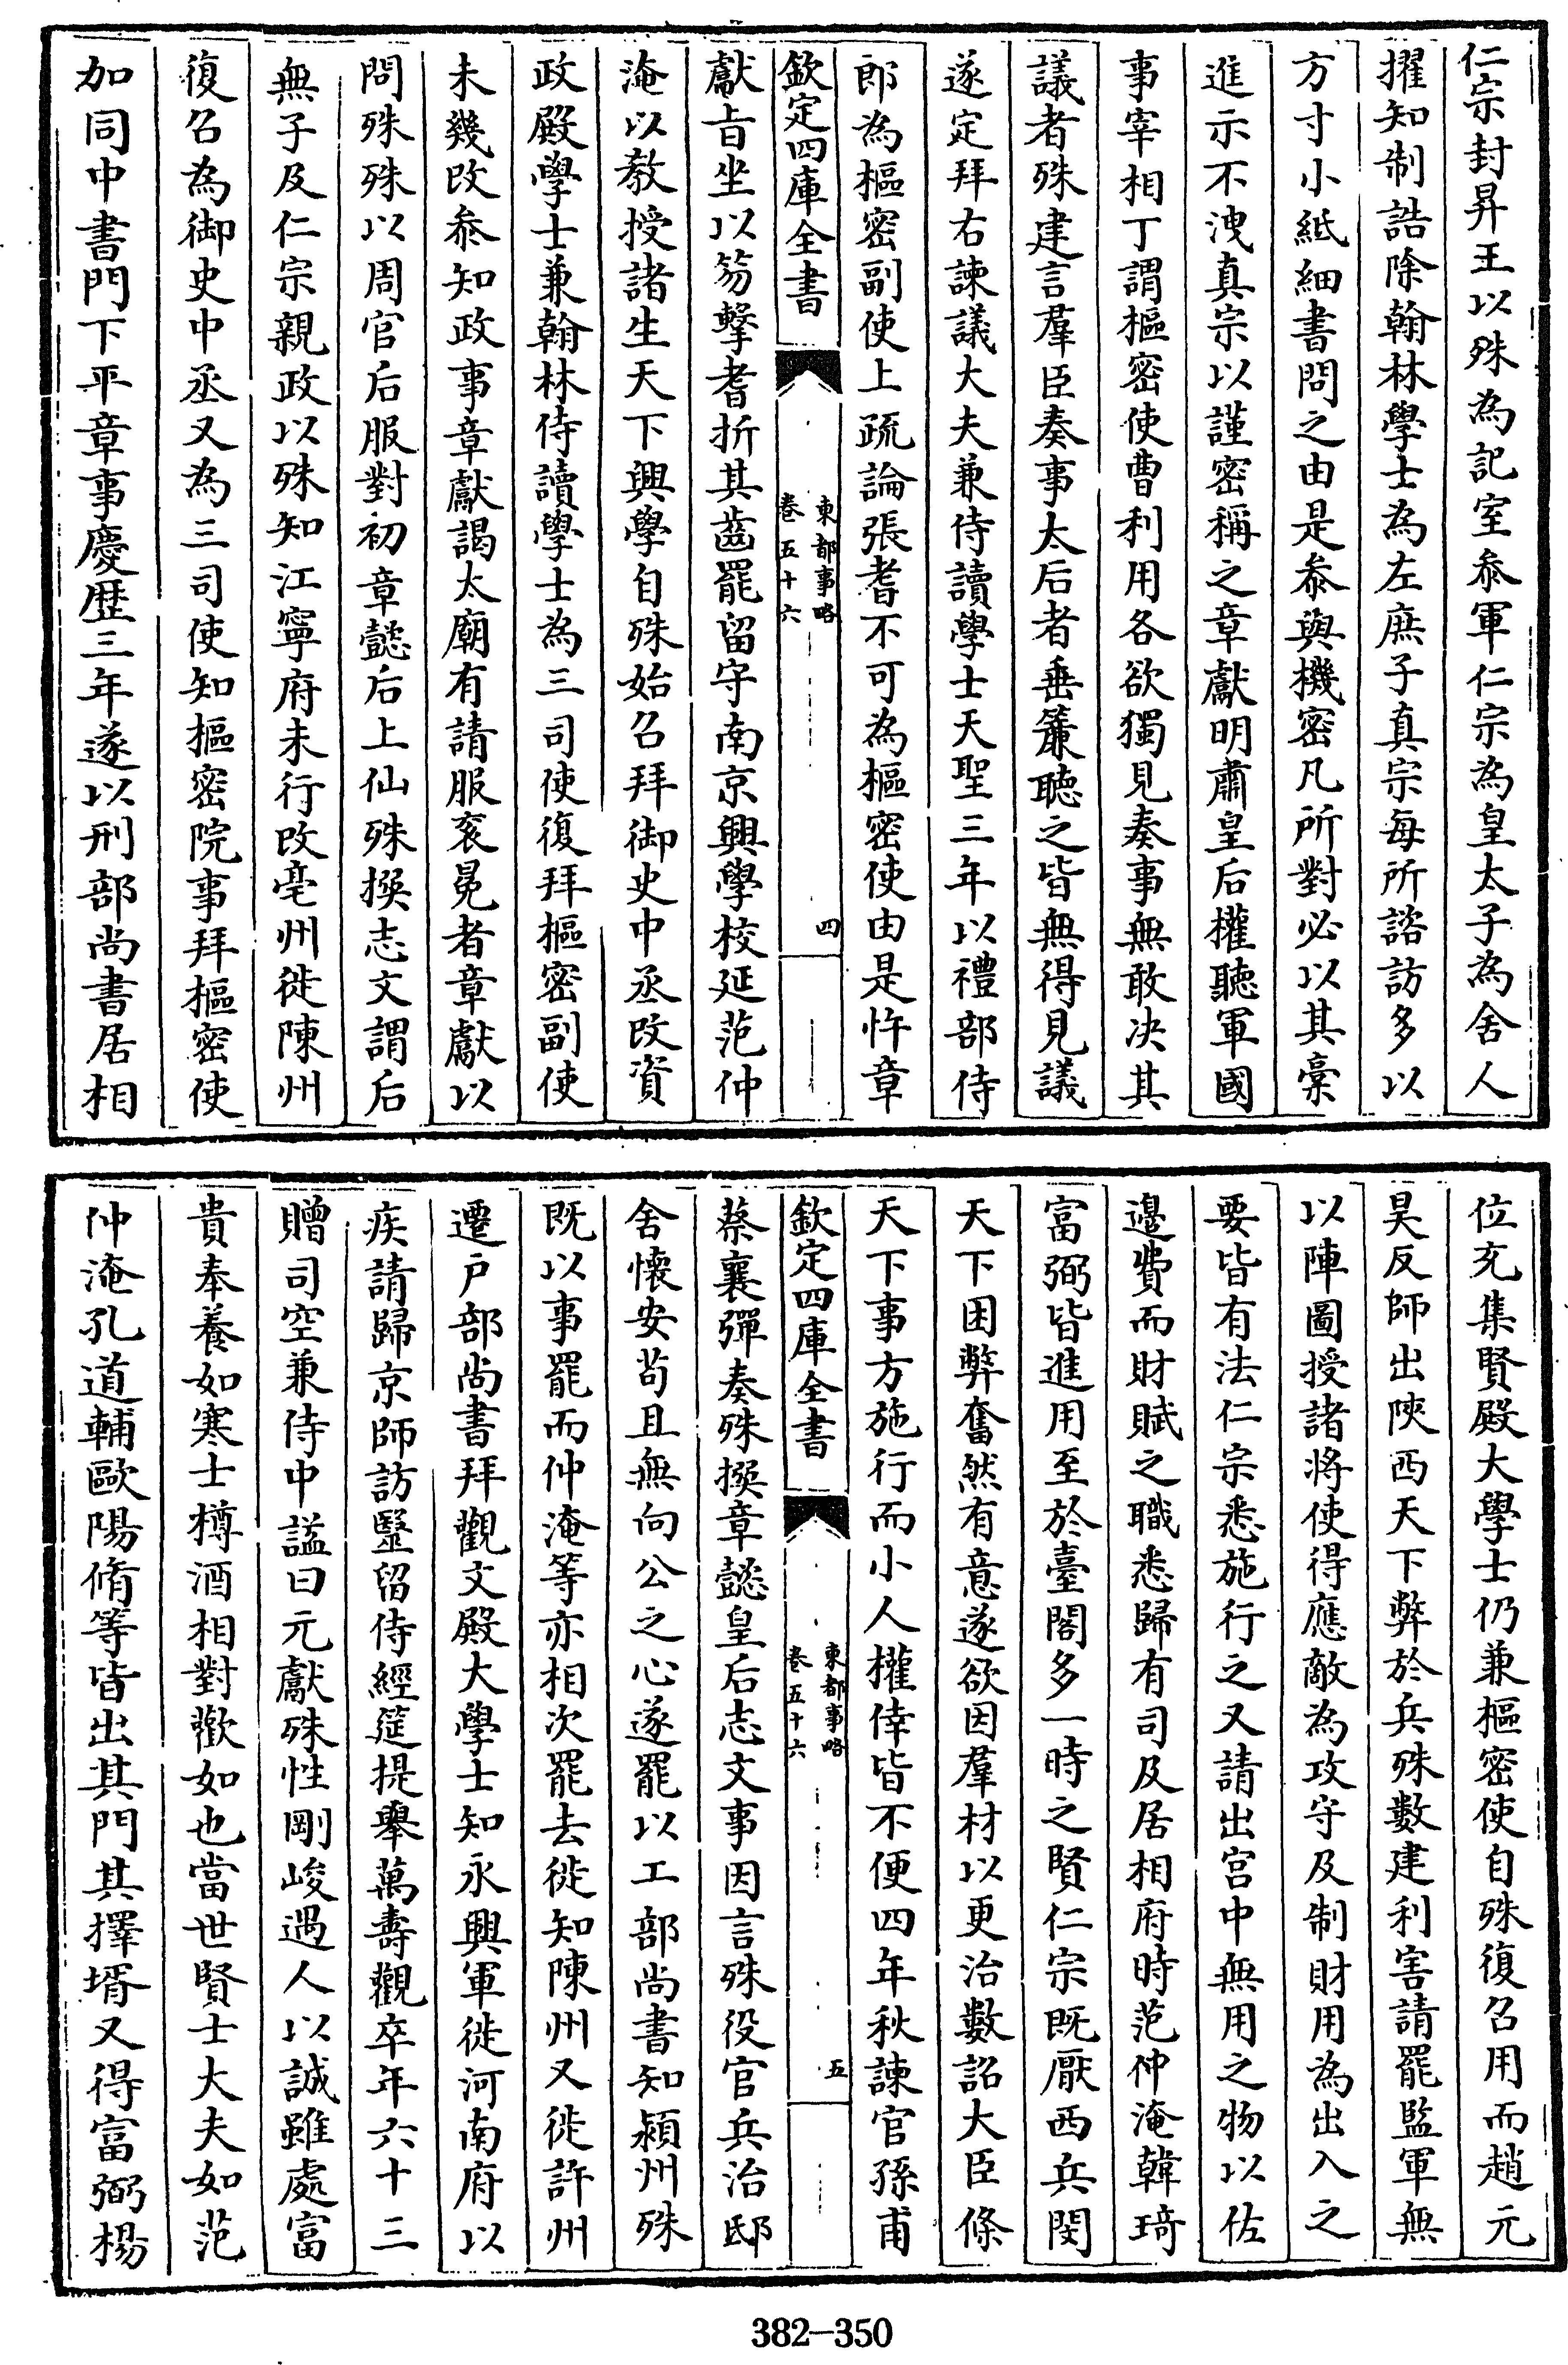 仁宗封昇王以殊為記室參軍仁宗為皇太子為舍人
擢知制誥除翰林學士為左庶子真宗每所諮訪多以
方寸小紙細書問之由是叅與機密凡所對必以其稾
進示不洩真宗以謹密稱之章獻明肅皇后權聽軍國
事宰相丁謂樞密使曹利用各欲獨見奏事無敢決其
議者殊建言羣臣奏事太后者垂簾聽之皆無得見議
遂定拜右諫議大夫兼侍讀學士天聖三年以禮部侍
郎為樞密副使上疏論張耆不可為樞密使由是忤章
欽定四庫全書
東都事略
卷五十六
四
獻旨坐以笏擊耆折其齒罷留守南京興學校延范仲
淹以教授諸生天下興學自殊始召拜御史中丞改資
政殿學士兼翰林侍讀學士為三司使復拜樞密副使
未幾改叅知政事章獻謁太廟有請服袞冕者章獻以
問殊殊以周官后服對初章懿后上仙殊撰志文謂后
無子及仁宗親政以殊知江寧府未行改亳州徙陳州
復召為御史中丞又為三司使知樞密院事拜樞密使
加同中書門下平章事慶歷三年遂以刑部尚書居相
位充集賢殿大學士仍兼樞密使自殊復召用而趙元
昊反師出陝西天下弊於兵殊數建利害請罷監軍無
以陣圖授諸將使得應敵為攻守及制財用為出入之
要皆有法仁宗悉施行之又請出宮中無用之物以佐
邊費而財賦之職悉歸有司及居相府時范仲淹韓琦
富弼皆進用至於臺閣多一時之賢仁宗既厭西兵閔
天下困弊奮然有意遂欲因羣材以更治數詔大臣條
天下事方施行而小人權倖皆不便四年秋諫官孫甫
欽定四庫全書
東都事略
卷五十六
五
蔡襄彈奏殊撰章懿皇后志文事因言殊役官兵治邸
舍懷安苟且無向公之心遂罷以工部尚書知潁州殊
既以事罷而仲淹等亦相次罷去徙知陳州又徙許州
遷戶部尚書拜觀文殿大學士知永興軍徙河南府以
疾請歸京師訪毉留侍經筵提舉萬壽觀卒年六十三
贈司空兼侍中謚曰元獻殊性剛峻遇人以誠雖處富
貴奉養如寒士樽酒相對歡如也當世賢士大夫如范
仲淹孔道輔歐陽脩等皆出其門其擇壻又得富弼楊
382-350